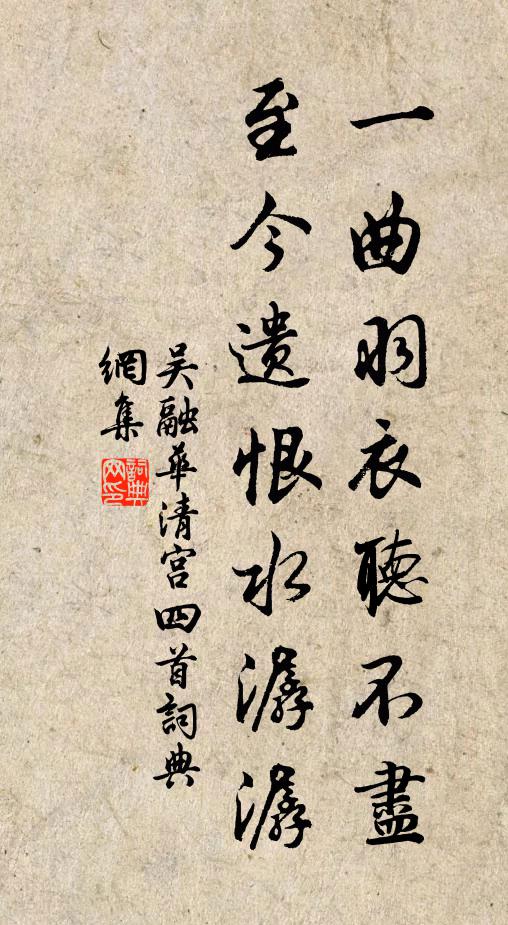 一曲羽衣聽不盡
至今遺恨水潺潺
吴融華清宫四首詞典
網集
詞典網印